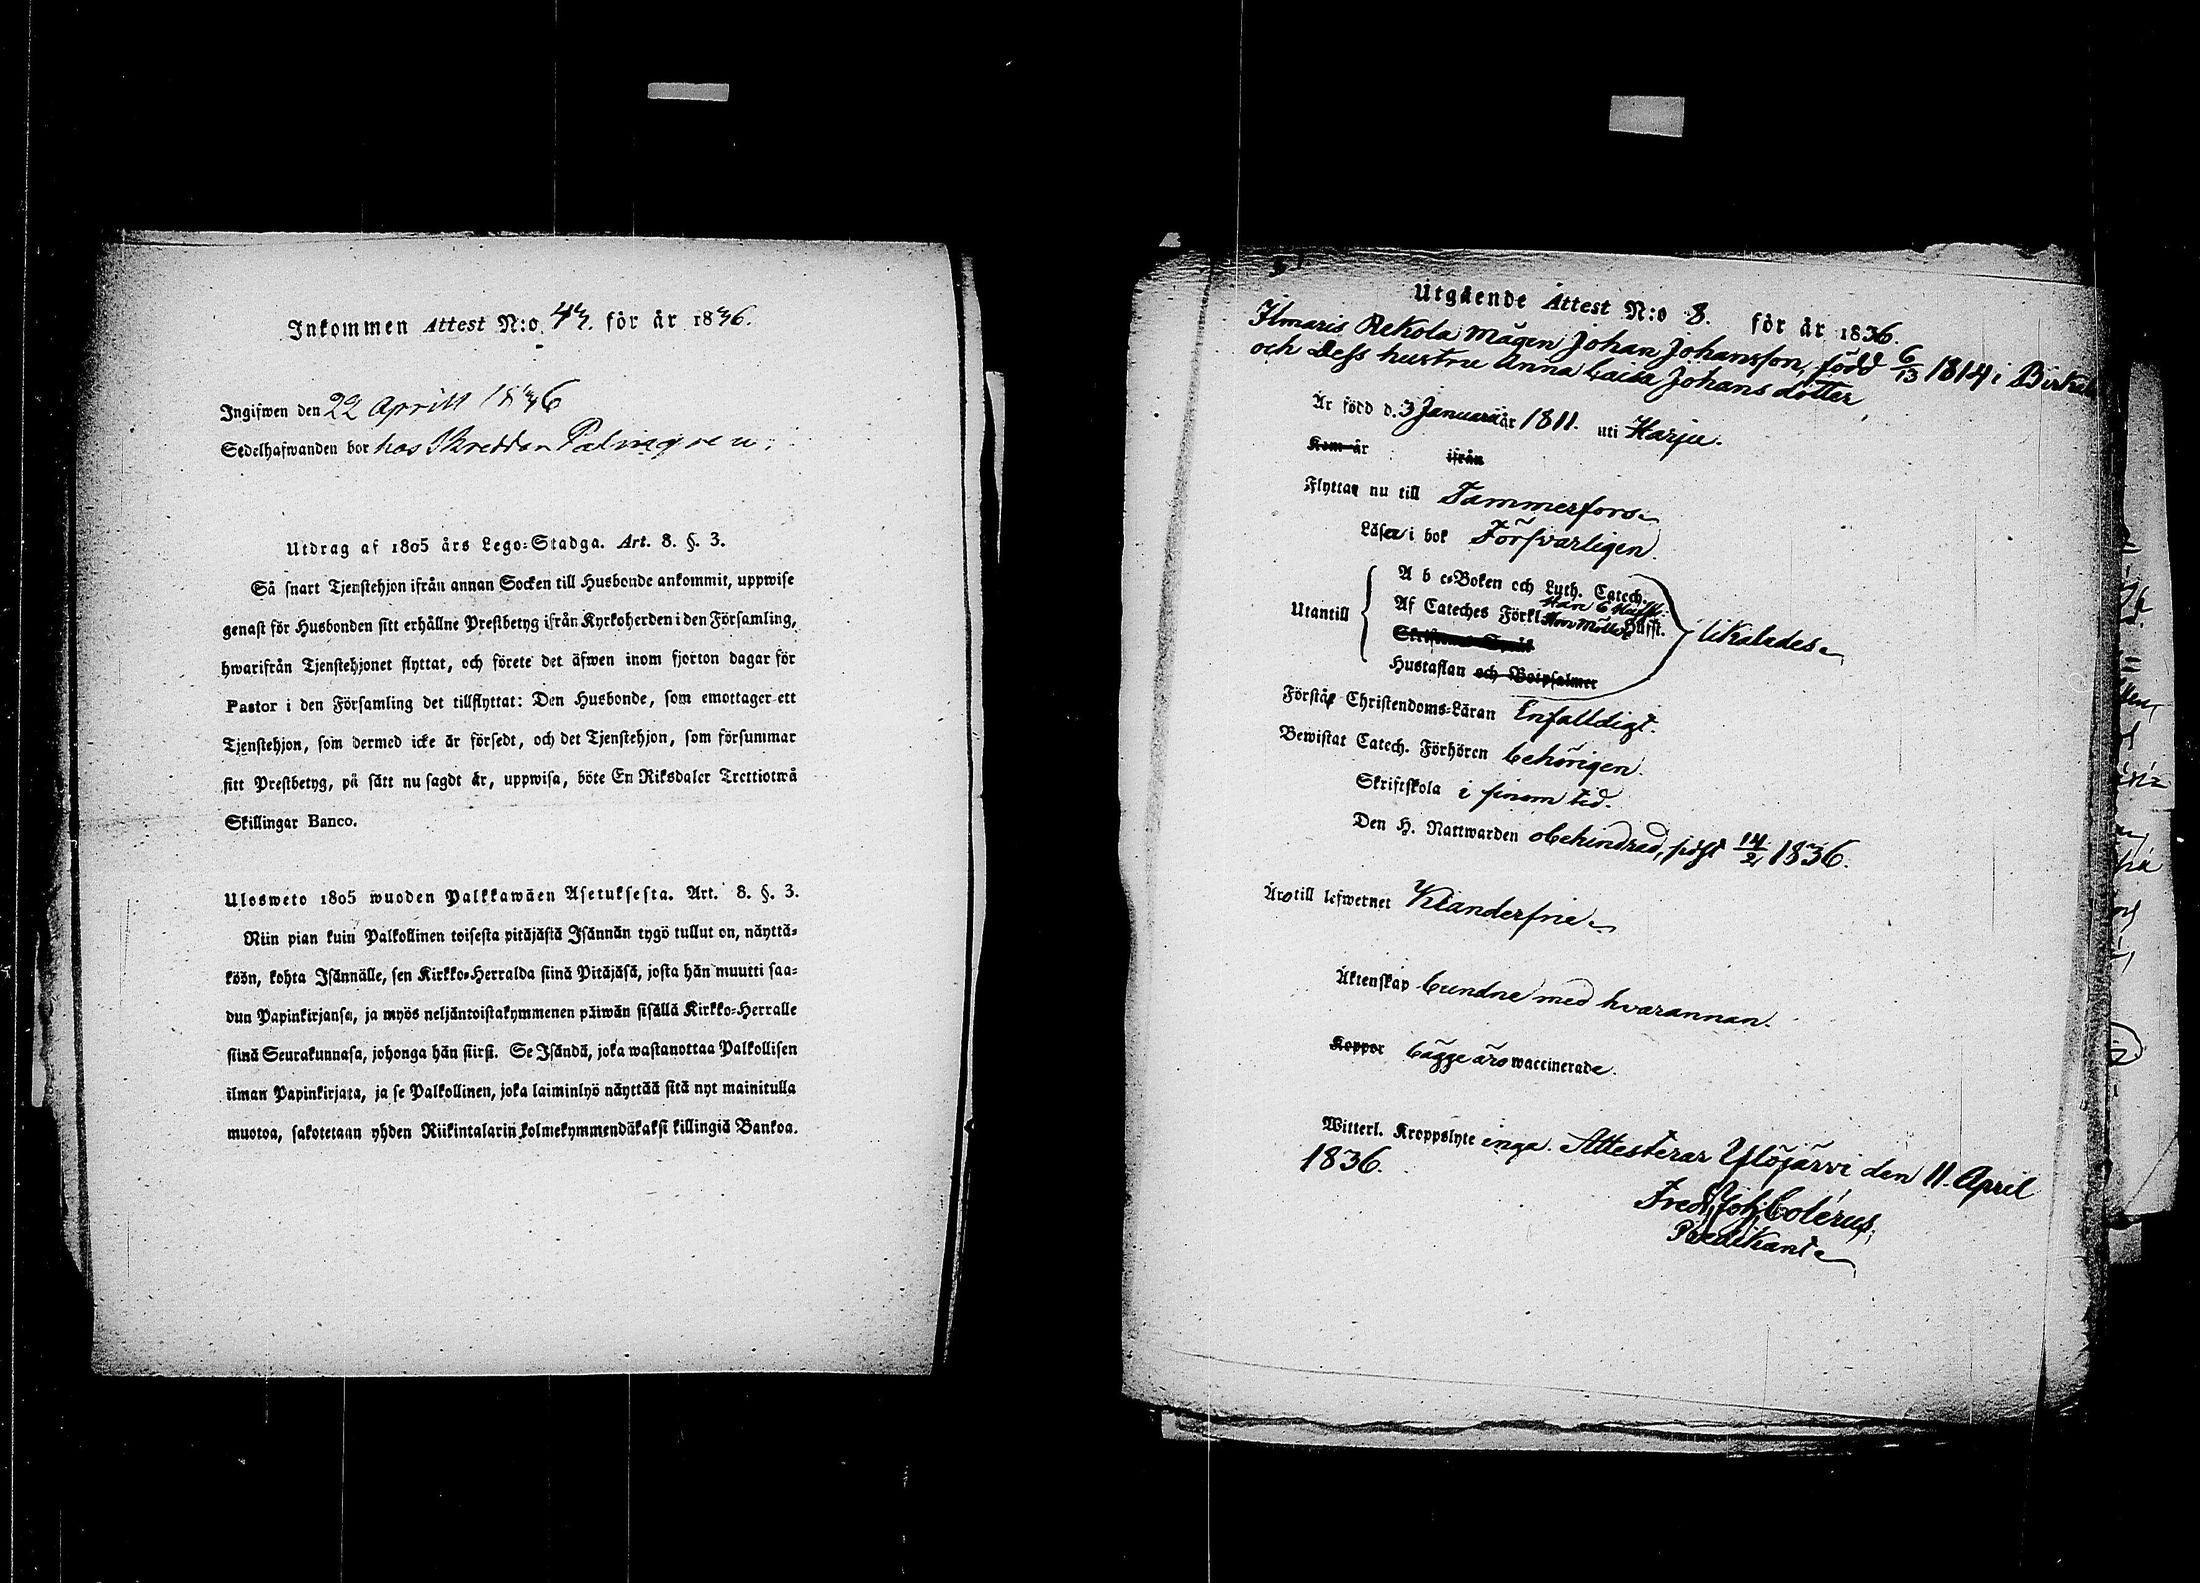 Inkommen Attest N:o 43. för år 1836.
Ingifwen den 22 Aprill 1836
Sedelhafwanden bor hos Skreddar Palmgren.
Utdrag af 1805 års Lego-Stadga. Art. 8. §. 3.
Så snart Tjenstehjon ifrån annan Socken till Husbonde ankommit, uppwise
genast för Husbonden sitt erhållne Prestbetyg ifrån Kyrkoherden i den Församling,
hwarifrån Tjenstehjonet flyttat, och förete det äfwen inom fjorton dagar för
Pastor i den Församling det tillflyttat: Den Husbonde, som emottager ett
Tjenstehjon, som dermed icke är försedt, och det Tjenstehjon, som försummar
sitt Prestbetyg, på sätt nu sagdt är, uppwisa, böte En Riksdaler Trettiotwå
Skillingar Banco.
Ulosweto 1805 wuoden Palkkawäen Asetuksesta. Art. 8. §. 3.
Niin pian kuin Palkollinen toisesta pitäjästä Isännän tygö tullut on, näyttä-
köön, kohta Isännälle, sen Kirkko-Herralda siinä Pitäjäsä, josta hän muutti saa-
dun Papinkirjansa, ja myös neljäntoistakymmenen päiwän sisällä Kirkko-Herralle
siinä Seurakunnasa, johonga hän siirsi. Se Isändä, joka wastanottaa Palkollisen
ilman Papinkirjata, ja se Palkollinen, joka laiminlyö näyttää sitä nyt mainitulla
muotoa, sakotetaan yhden Riikintalarin kolmekymmendäkaksi killingiä Bankoa.
Utgående Attest N:o 8. för år 1836.
Ilmaris Rekola mågen Johan Johansson, född 6/13 1814 i Birkala
och Dess hustru Anna Caisa Johansdotter
Är född d. 3 Januari år 1811. uti Harju.
Kom år ifrån
Flyttar nu till Tammerfors
Läser i bok Försvarligen.
Utantill A b c-Boken och Luth. Catech.
Af Cateches Förkl. Hufst.
likaledes
Hustaflan och Botpsalmer
Förstår Christendoms-Läran Enfalldigt.
Bewistat Catech. Förhören behörigen.
Skriftskola i sinom tid.
Den H. Nattwarden obehindrad, sidst 14/2 1836.
Äro till lefwernet Klanderfrie
Äktenskap bundne med hvarannan.
Koppor bägge äro waccinerade.
Witterl. Kroppslyte inga. Attesterar Ylöjärvi den 11 April
1836.
Fredr. Joh. Colérus,
Predikant